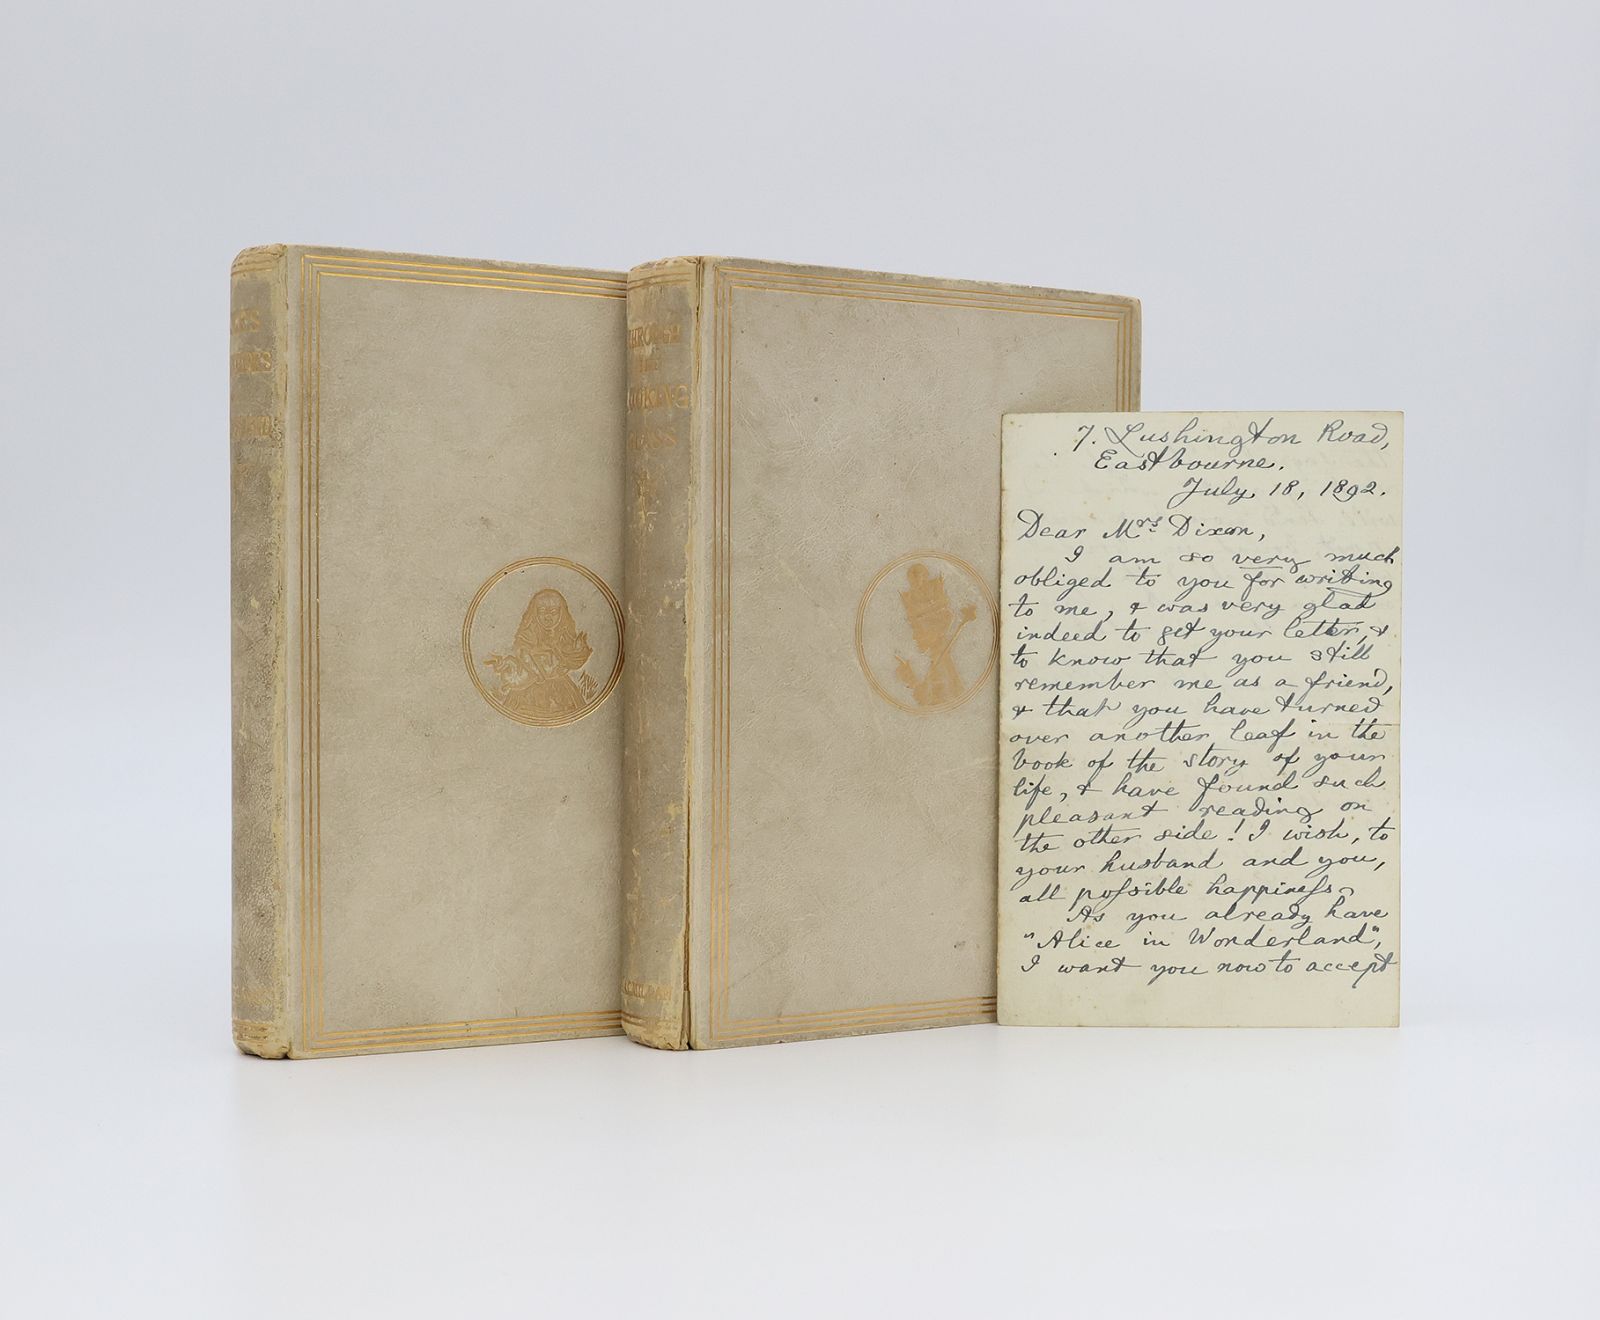 THROUGH
THE
LOOKING
GLASS
MACMILLAN
7. Lushington Road,
Eastbourne.
July 18, 1892.
Dear Mrs. Dixon,
I am so very much
obliged to you for writing
to me, & was very glad
indeed to get your letter, &
to know that you still
remember me as a friend,
& that you have turned
over another leaf in the
book of the story of your
life, & have found such
pleasant reading on
the other side! I wish, to
your husband and you,
all poſsible happineſs.
As you already have
"Alice in Wonderland",
I want you now to accept